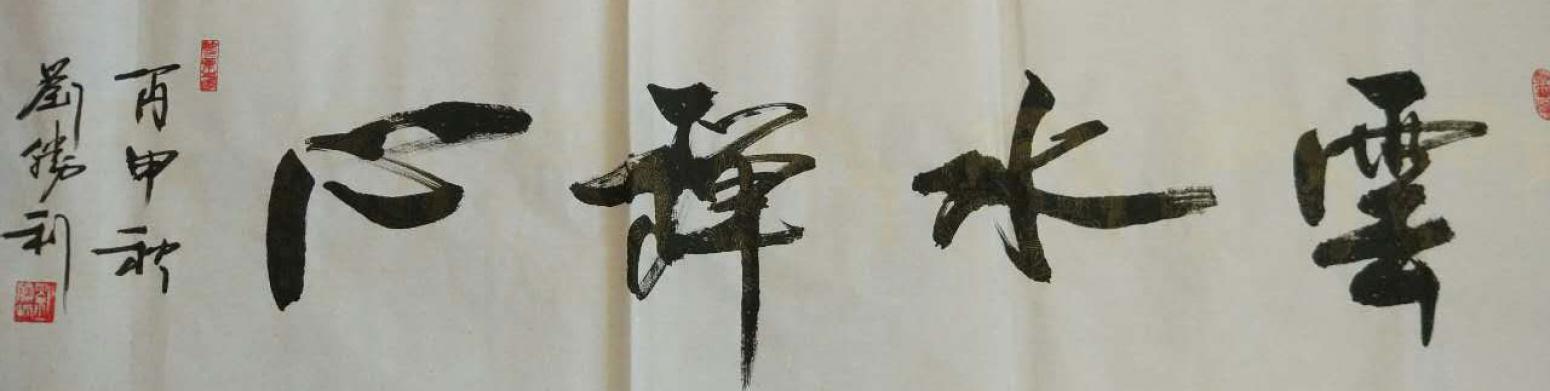 雲水禪心
丙申秋
劉勝利